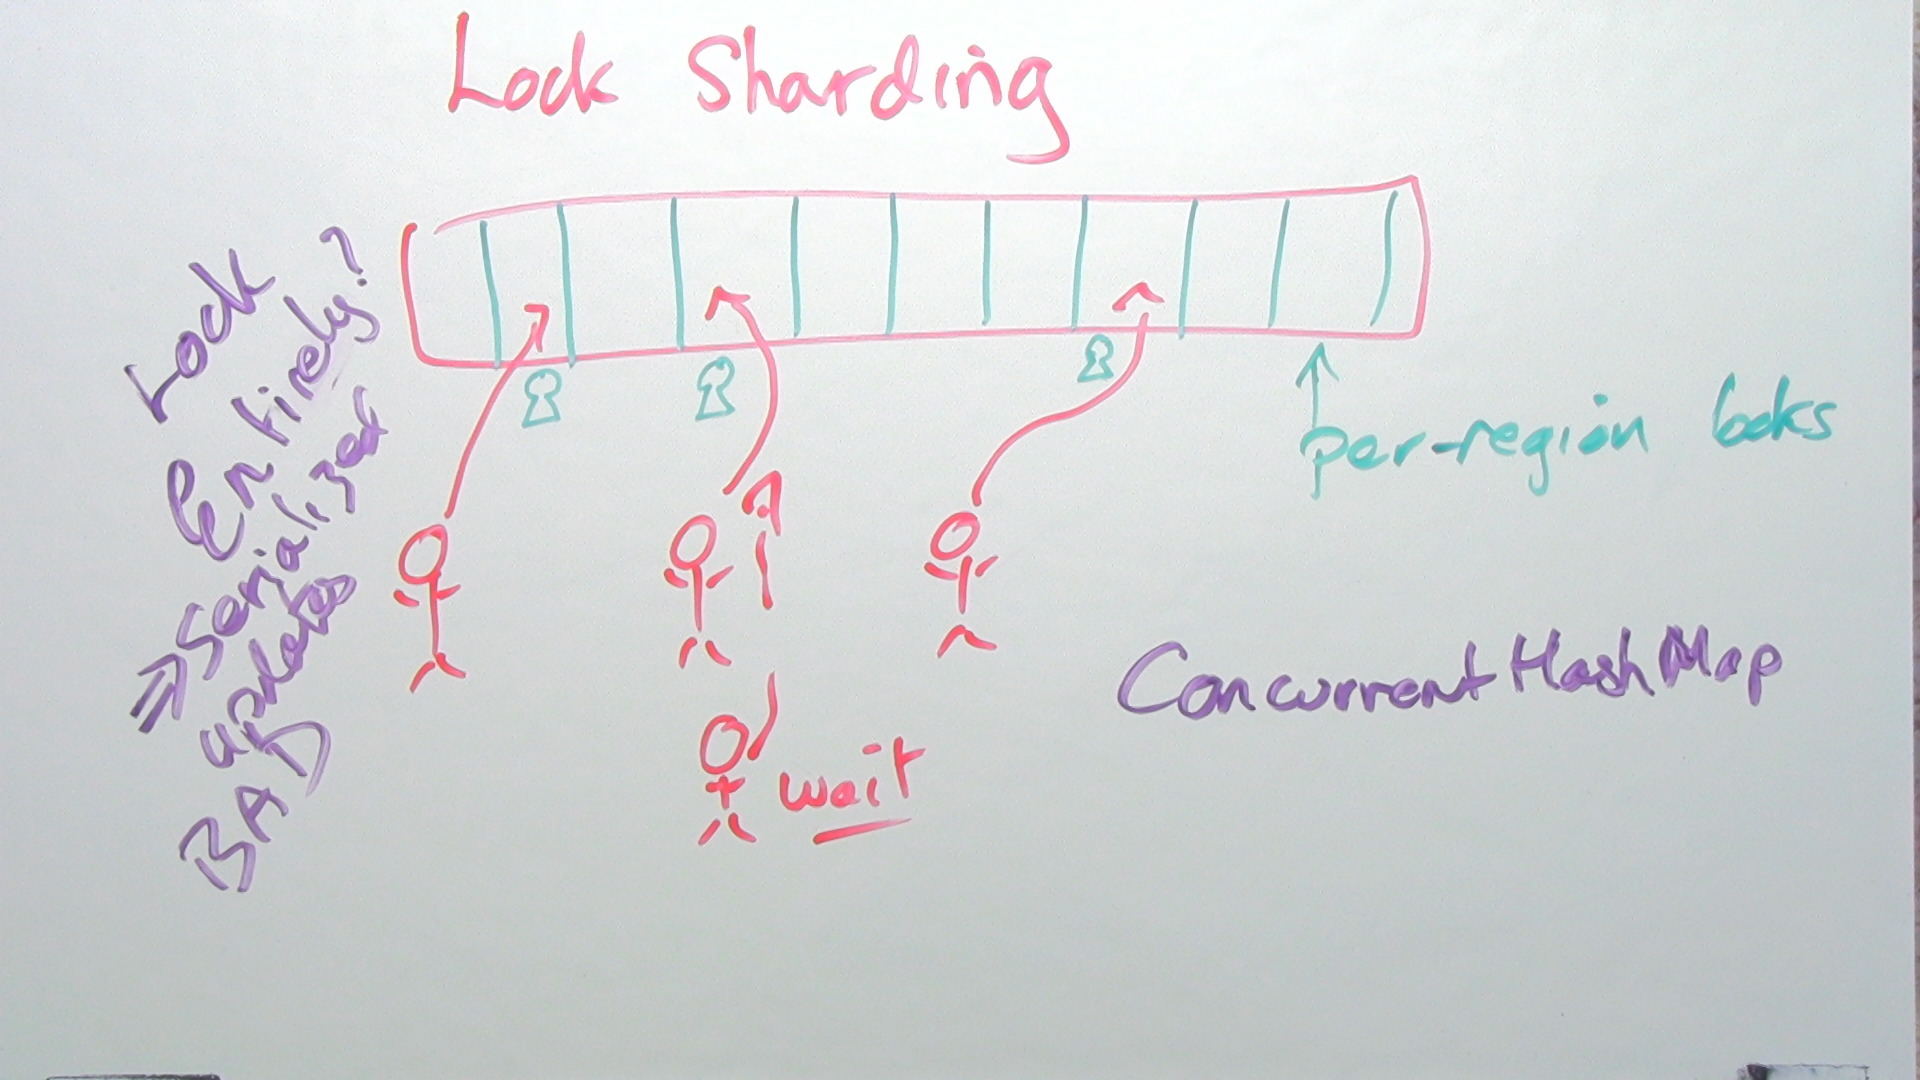 Lock Sharding
Lock
Entirely?
⇒ Serialized
updates
BAD
per-region locks
ConcurrentHashMap
wait